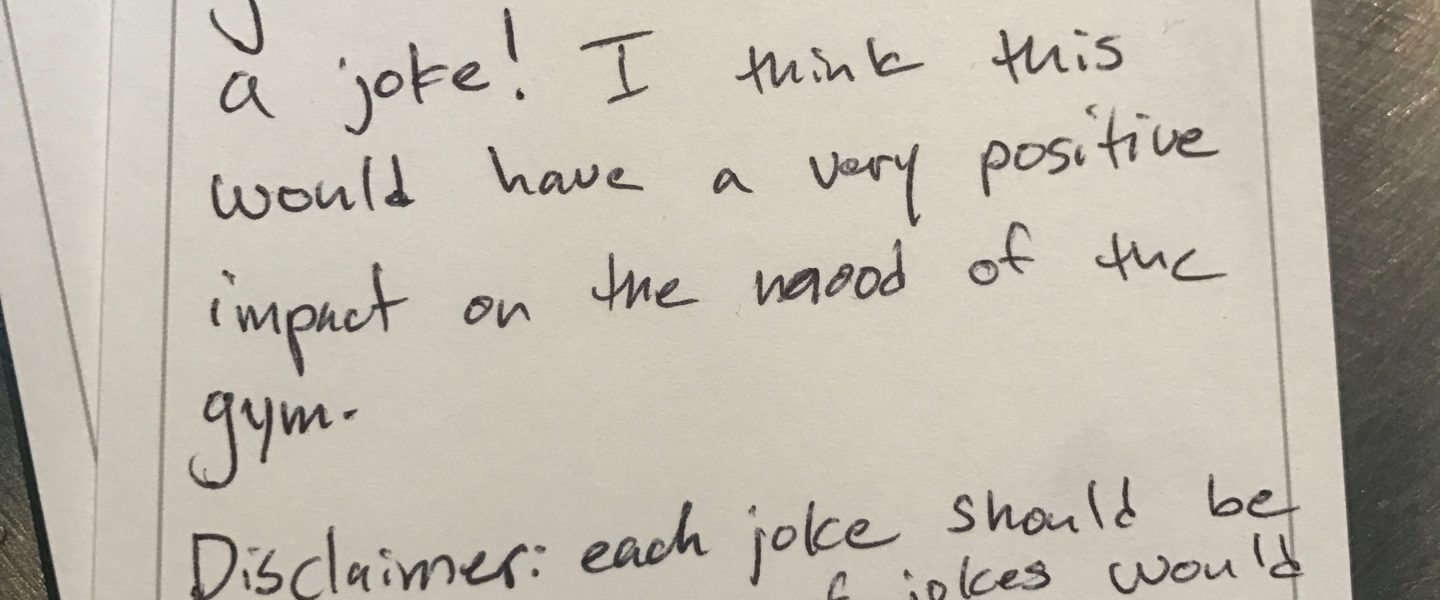 a joke! I think this
would have a very positive
impact on the mood of the
gym.
Disclaimer: each joke should be
jokes would